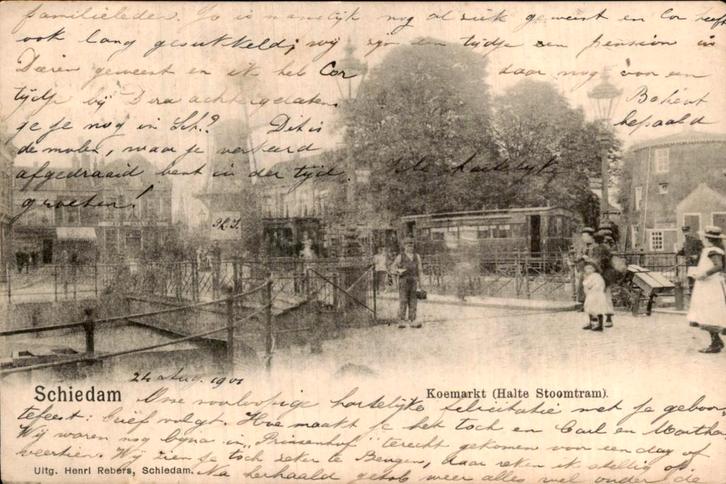 familieleden. Jo is namelijk nog al ziek geweest en Cor heeft
ook lang gesukkeld; wij zijn een tijdje een pension in
geweest en ik heb Cor daar nog voor een
tijdje bij achtergelaten. Bekent
je je nog in Sch.? Dit is bepaald
de molen, waar je verkeerd
afgedraaid bent in der tijd. hartelijke
groeten!
Schiedam 24 Aug. 1901 Koemarkt (Halte Stoomtram).
Onze voorloopige hartelijke felicitatie met je geboor
tefeest: brief volgt. Hoe maakt je het toch en Carl en Martha
Wij waren nog bijna in terecht gekomen voor een dag of
veertien. Wij zien je toch zeker te Bergen, daar reken ik stellig op
Uitg. Henri Rebers, Schiedam. Na herhaald weer alles wel onder de